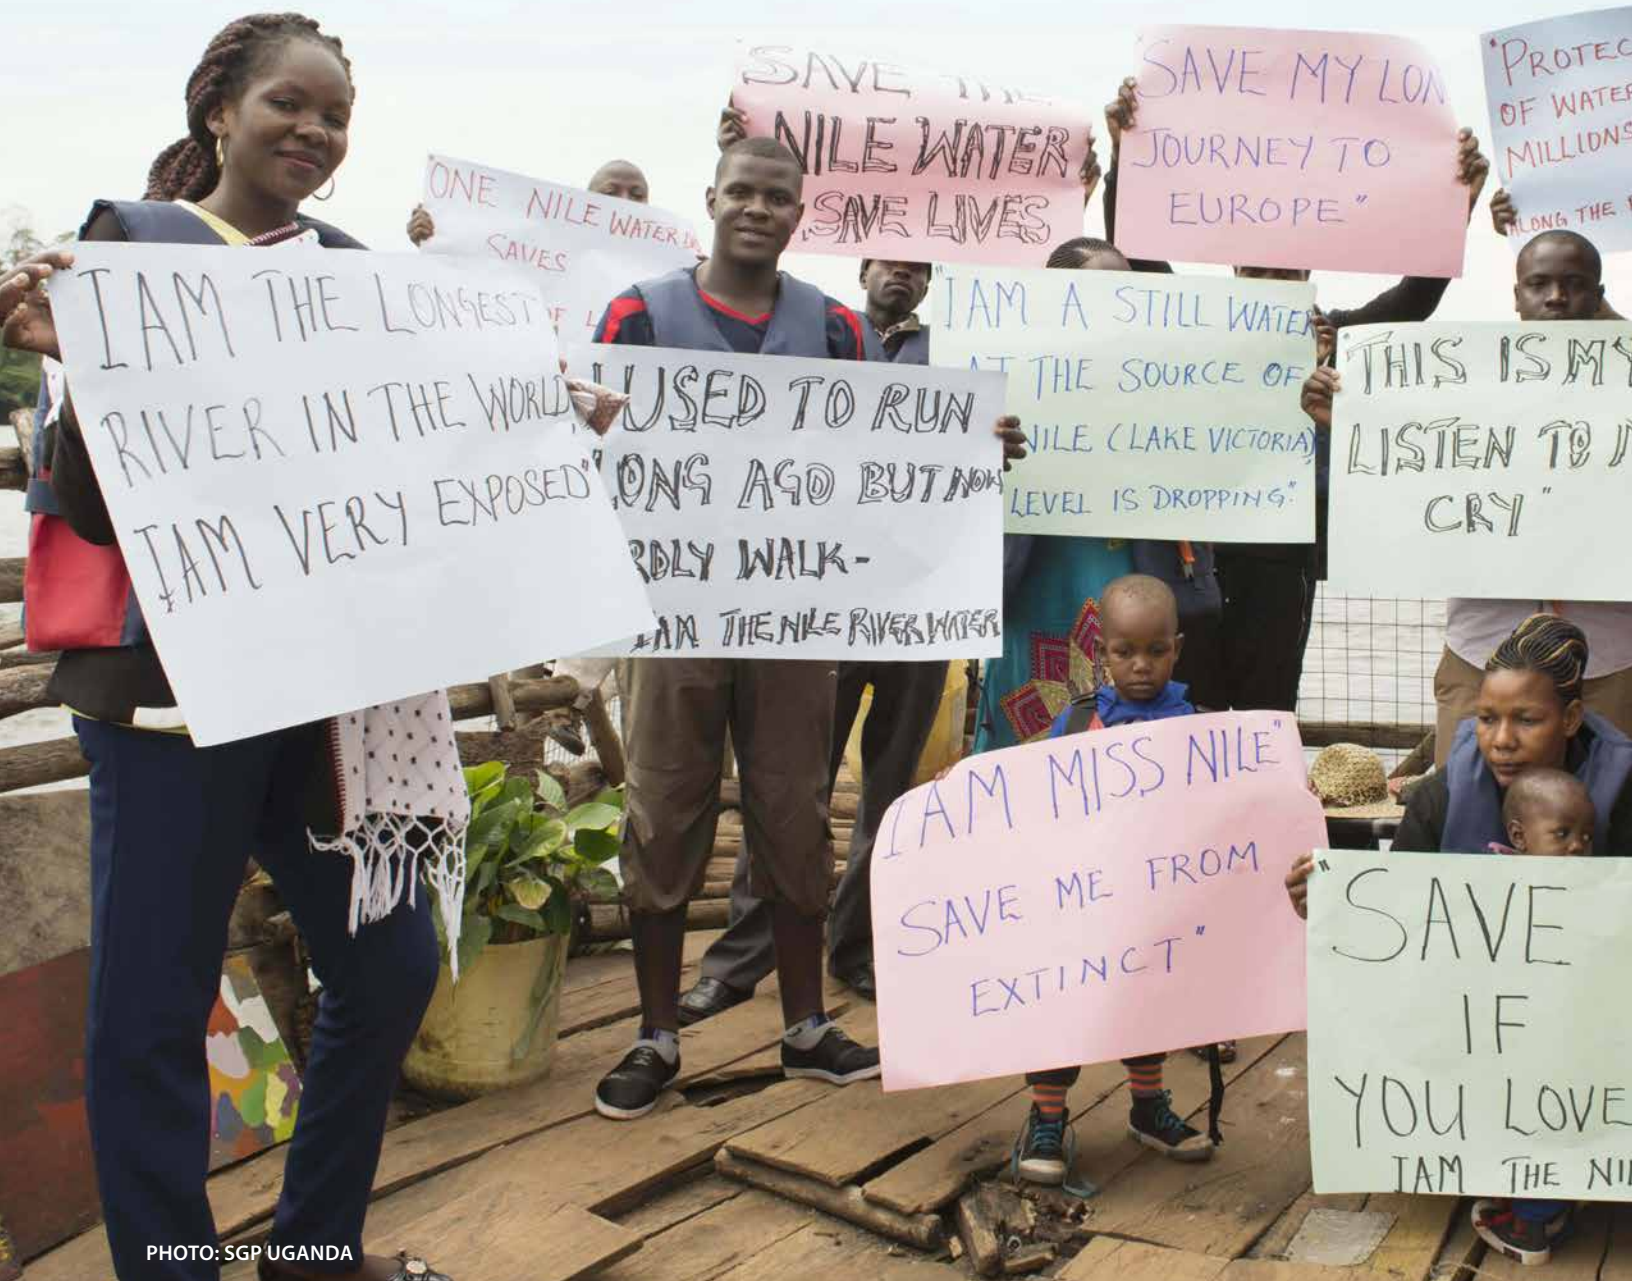 I AM THE LONGEST
RIVER IN THE WORLD,
I AM VERY EXPOSED"
"ONE NILE WATER
SAVES
OF
SAVE THE
NILE WATER
SAVE LIVES
USED TO RUN
LONG AGO BUT NOW
RDLY WALK-
I AM THE NILE RIVER WATER
"SAVE MY LON
JOURNEY TO
EUROPE"
"I AM A STILL WATER
AT THE SOURCE OF
NILE (LAKE VICTORIA)
LEVEL IS DROPPING."
"PROTEC
OF WATER
MILLIONS
ALONG THE
"THIS IS MY
LISTEN TO
CRY"
I AM MISS NILE"
SAVE ME FROM
EXTINCT"
"SAVE
IF
YOU LOVE
I AM THE NIL
PHOTO: SGP UGANDA